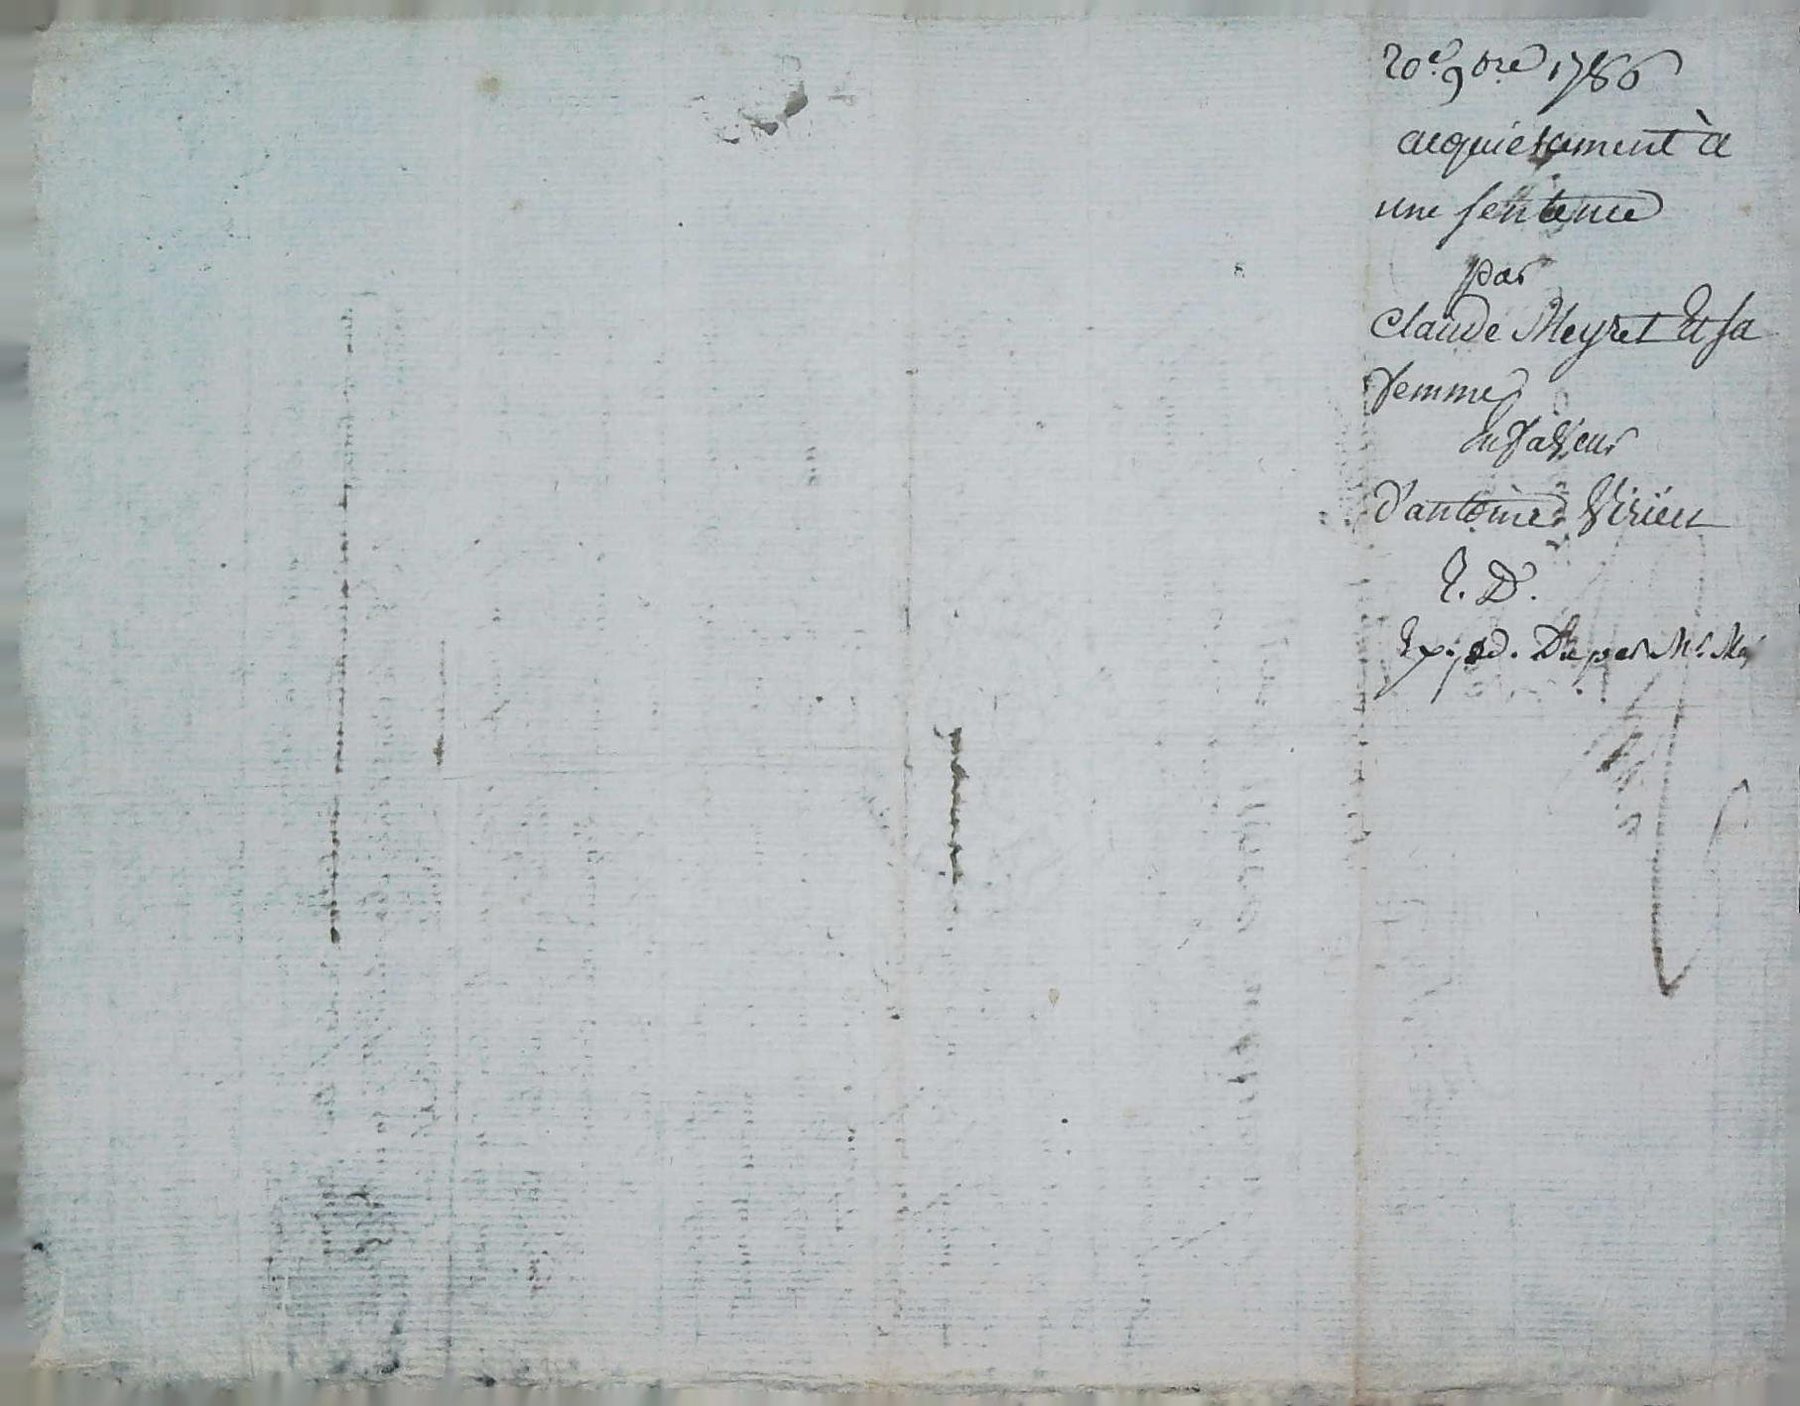 20e 9bre 1786
acquiessement à
une sentence
par
Claude Meyret Et sa
femme
En faveur
d'antoine Virieu
E. D.
Exp. Ed.